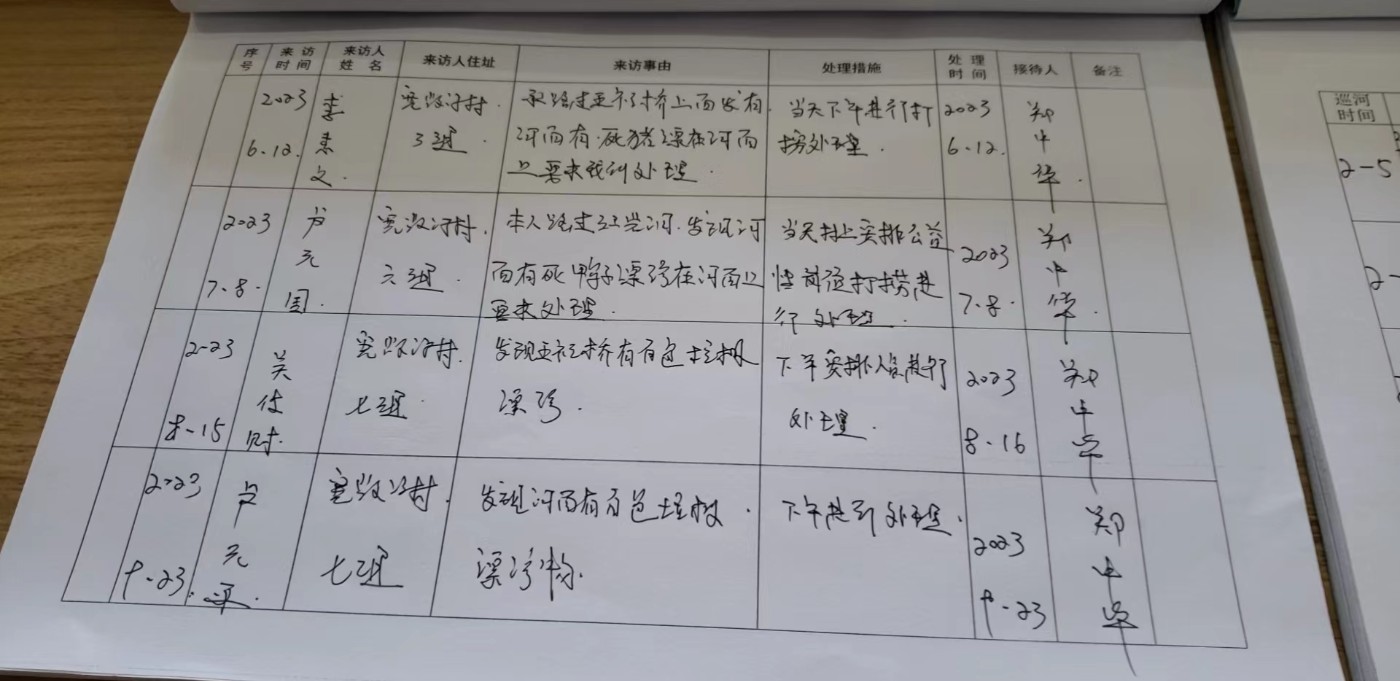 序号 来访时间 来访人姓名 来访人住址 来访事由 处理措施 处理时间 接待人 备注
2023 6.12. 李 文 村 3组
当天下午进行打捞处理. 2023 6.12. 郑中华.
河面有.死猪漂在河面
上要求我们处理.
2023 7.8. 卢元国. 村. 六组.
本人路过 河.发现河
面有死鸭子漂浮在河面上
要求处理.
当天村上安排公益
性岗位打捞进
行处理.
2023 7.8. 郑中华
2023 8-15 关 时. 村. 七组.
发现 桥有白色垃圾
漂浮.
下午安排人员进行
处理.
2023 8-16 郑中华
2023 9-23. 卢元平. 村. 七组
发现河面有白色垃圾.
漂浮物.
下午进行处理.
2023 9-23 郑中华
巡河时间
2-5
2-